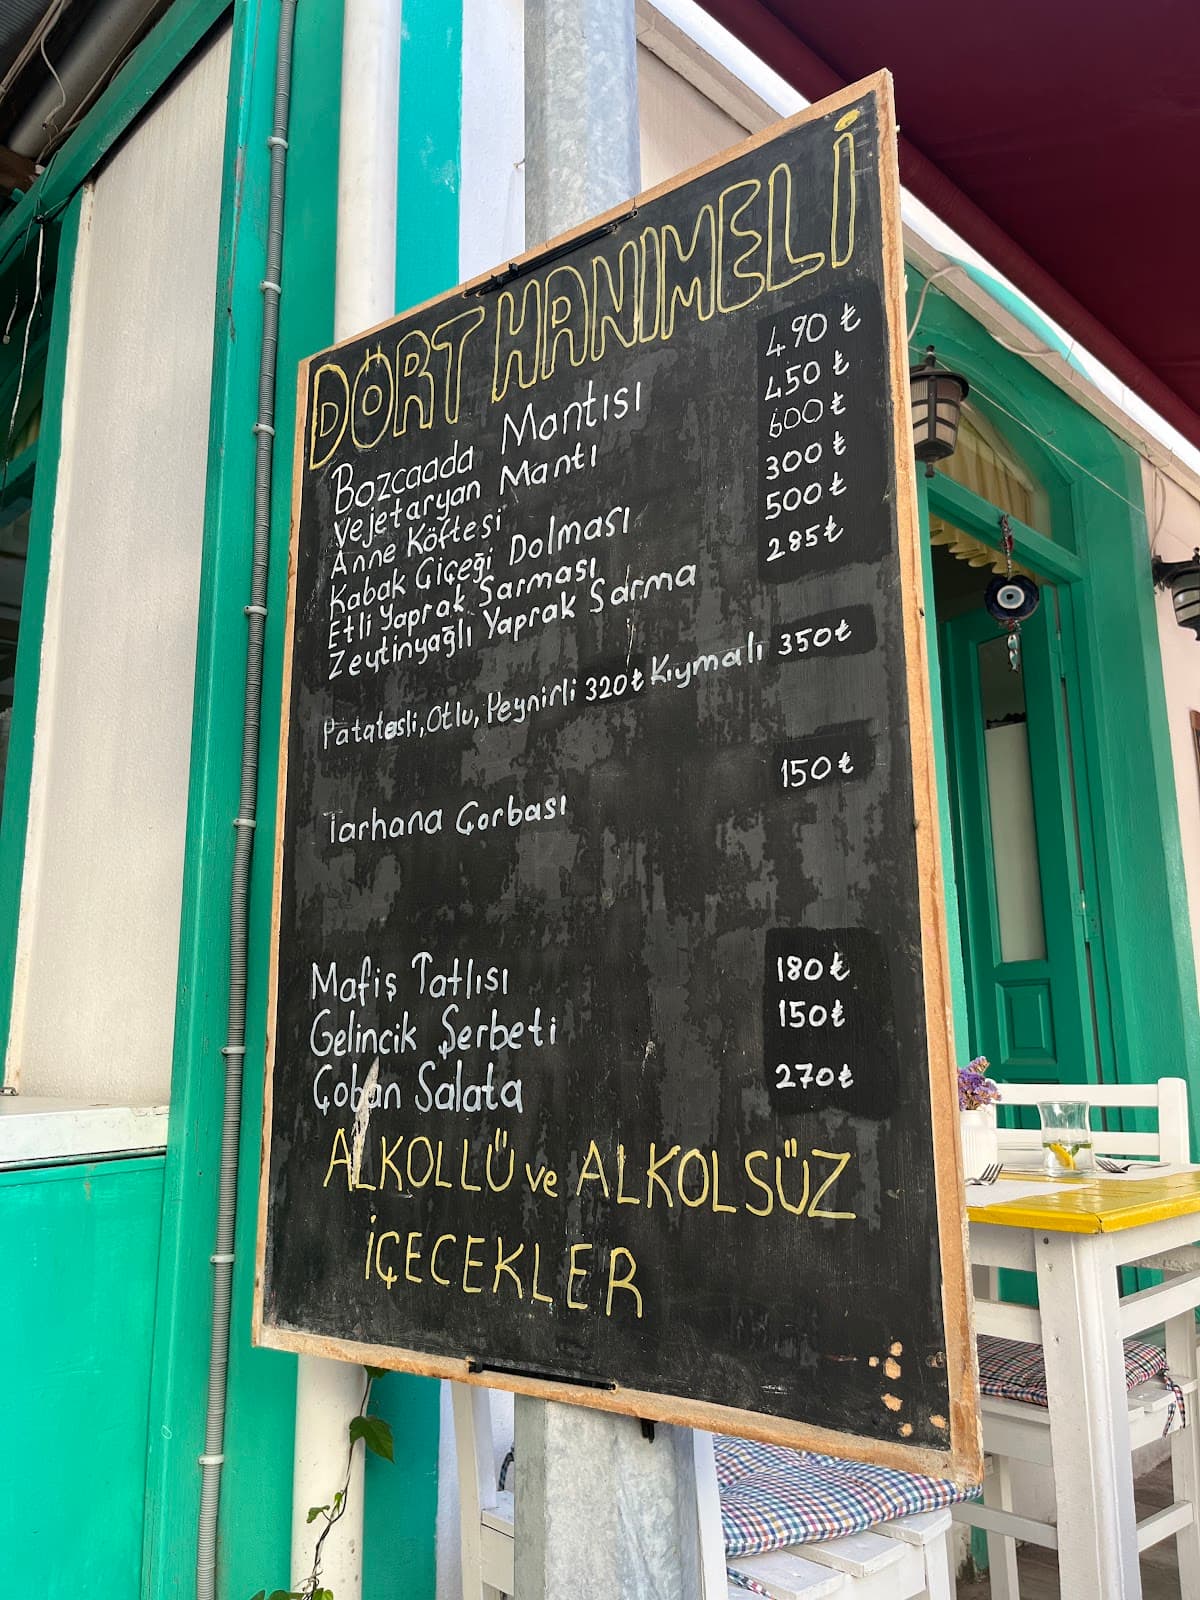 DÖRT HANIMELİ
Bozcaada Mantısı 490 ₺
Vejetaryan Mantı 450 ₺
Anne Köftesi 600 ₺
Kabak Çiçeği Dolması 300 ₺
Etli Yaprak Sarması 500 ₺
Zeytinyağlı Yaprak Sarma 285₺
Patatesli, Otlu, Peynirli 320₺ Kıymalı 350₺
Tarhana Çorbası 150₺
Mafiş Tatlısı 180₺
Gelincik Şerbeti 150₺
Çoban Salata 270₺
ALKOLLÜ ve ALKOLSÜZ
İÇECEKLER